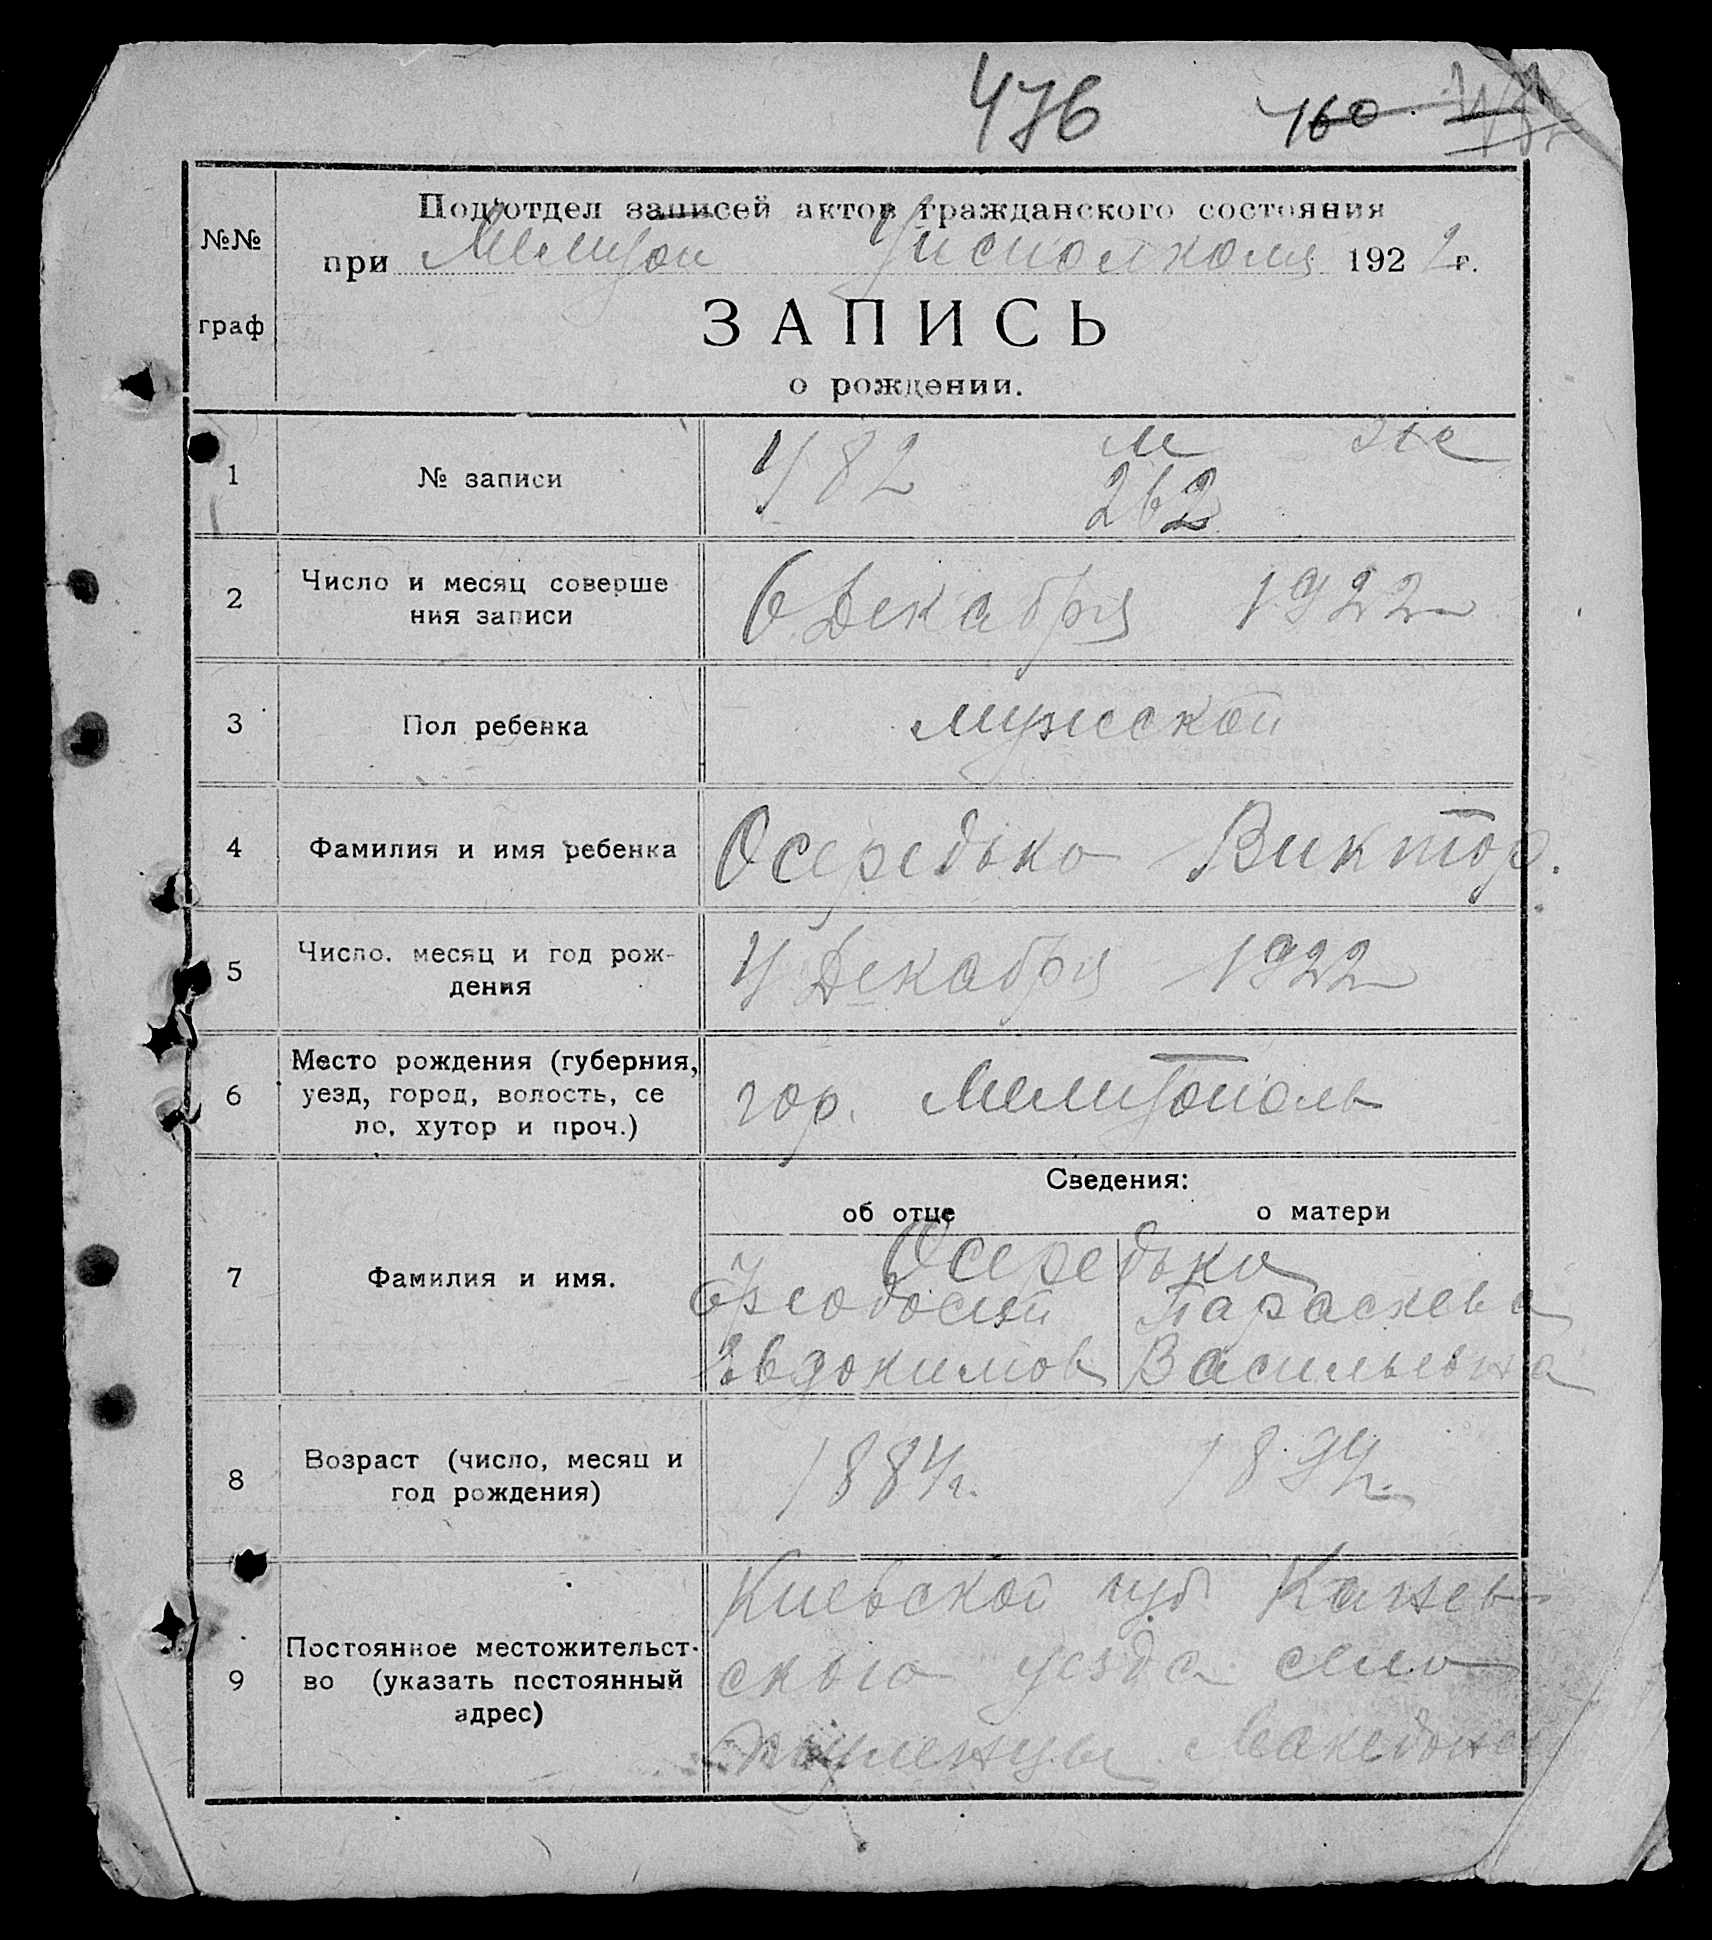 476 760
№№
граф
Под'отдел записей актов гражданского состояния
при Мелитоп Уисполкома 1922 г.
ЗАПИСЬ
о рождении.
1 № записи 482 м же
262
2 Число и месяц соверше 6 Декабря 1922
ния записи
3 Пол ребенка мужской
4 Фамилия и имя ребенка Осередько Виктор.
5 Число, месяц и год рож- 4 Декабря 1922
дения
6 Место рождения (губерния,
уезд, город, волость, се гор. Мелитополь
ло, хутор и проч.)
Сведения:
об отце о матери
7 Фамилия и имя. Осередько
Феодосий Параскева
Евдокимов Васильевна
8 Возраст (число, месяц и 1884г. 1894г.
год рождения)
Киевской губ Канев
9 Постоянное местожительст- ского уезда село
во (указать постоянный
адрес) Македон